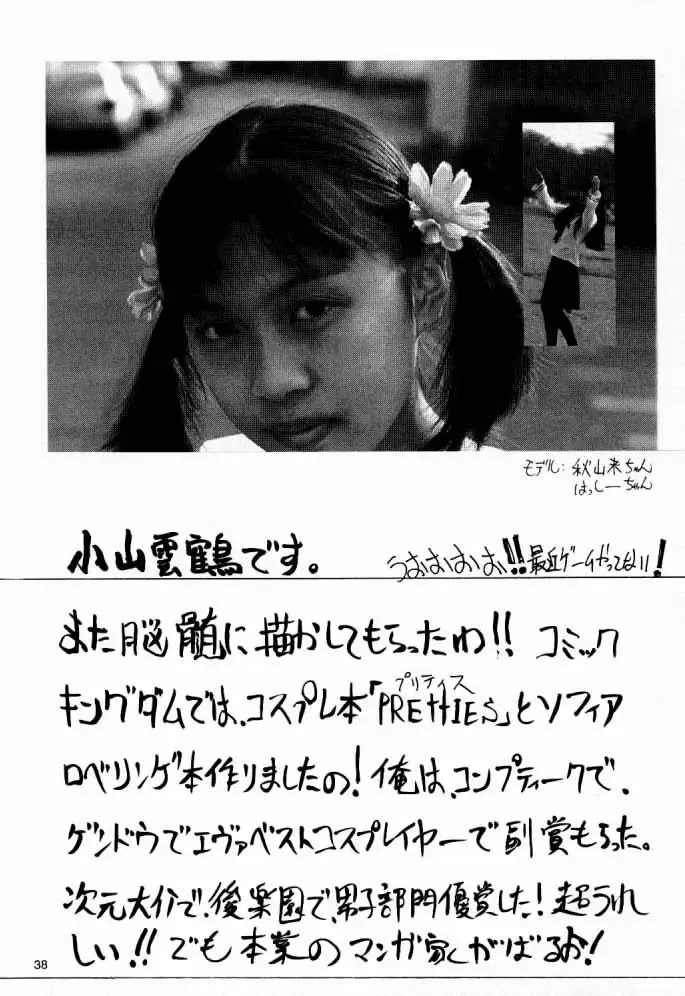 モデル: 秋山来ちゃん
はっしーちゃん
小山雲鶴です。
うおおおお!!最近ゲームやってない!
また脳髄に描かしてもらったわ!! コミック
プリティス
キングダムでは、コスプレ本「PREttIES」とソフィア
ロベリンゲ本作りましたの! 俺は、コンプティークで、
ゲンドウでエヴァベストコスプレイヤーで副賞もらった。
次元大介で、後楽園で、男子部門優賞した! 超うれ
しい!! でも本業のマンガ家、がばるお!
38